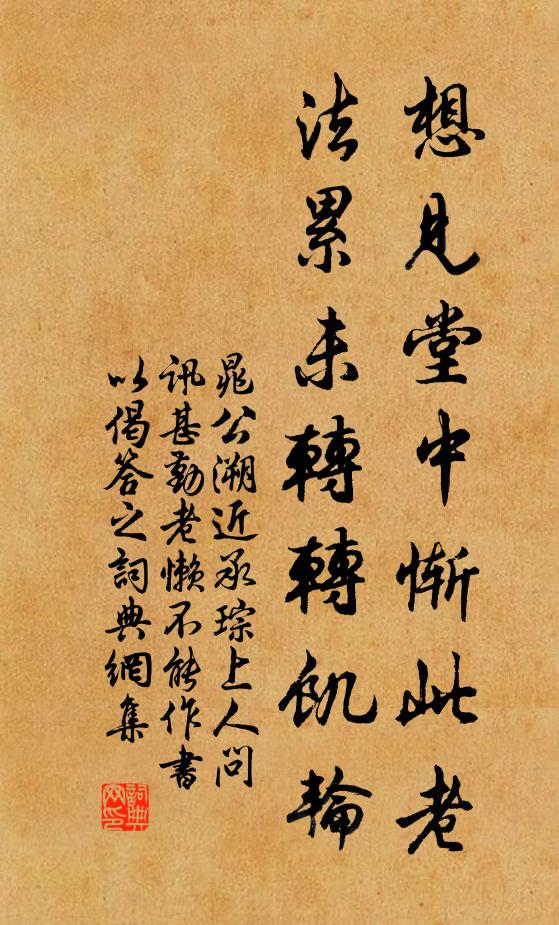 想見堂中慚此老
法累未轉轉飢輪
晁公溯近承琮上人問
訊甚勤老懶不能作書
以偈答之詞典網集
詞典
网印